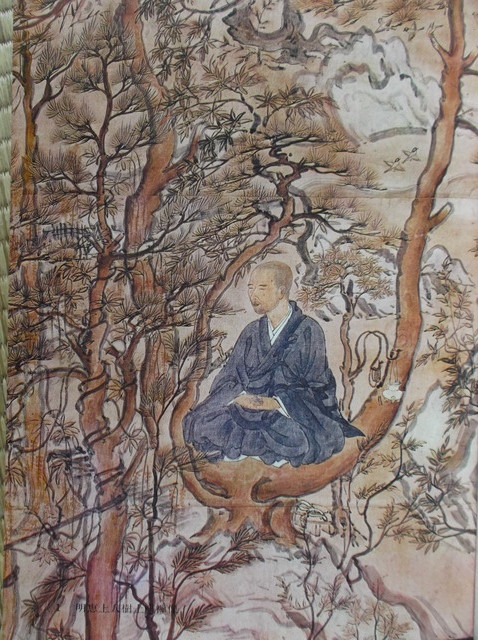 1 明恵上人樹上坐禅像